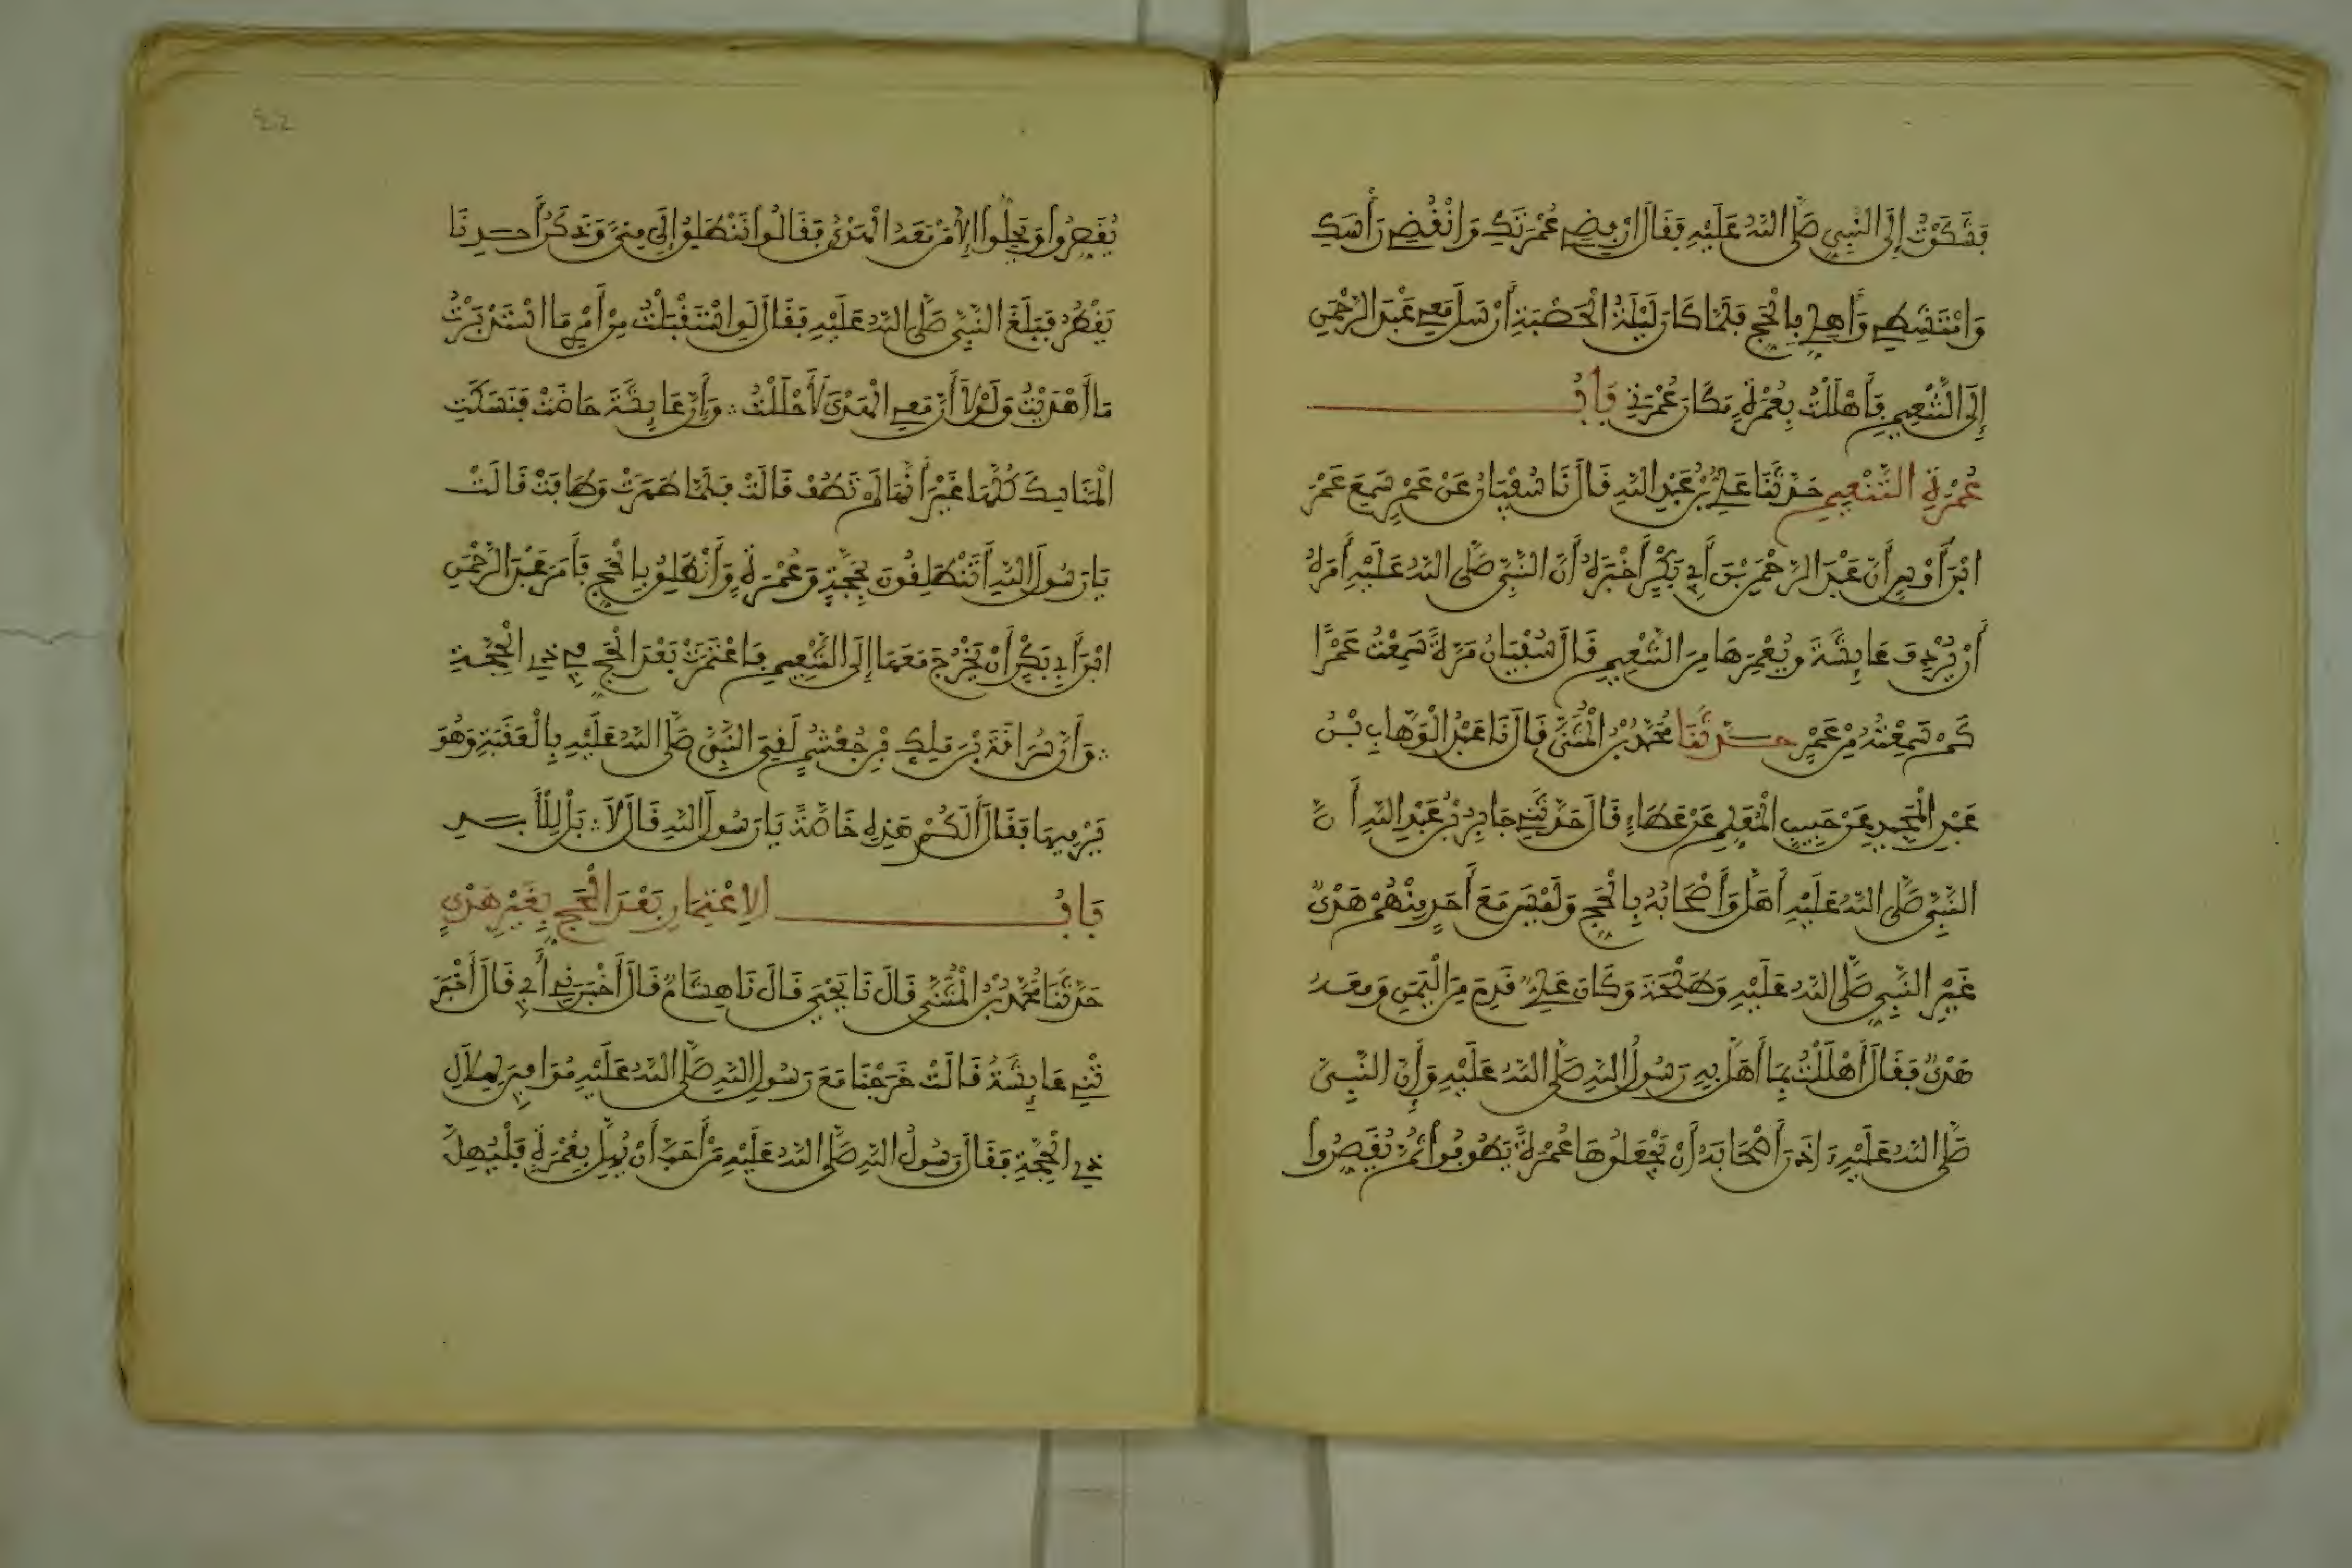 فَشَكَوْتُ إِلَى النَّبِيِّ صَلَّى اللَّهُ عَلَيْهِ فَقَالَ ارْفِضِي عُمْرَتَكِ وَانْقُضِي رَأْسَكِ
وَامْتَشِطِي وَأَهِلِّي بِالْحَجِّ فَلَمَّا كَانَ لَيْلَةُ الْحَصْبَةِ أَرْسَلَ مَعِي عَبْدَ الرَّحْمَنِ
إِلَى التَّنْعِيمِ فَأَهْلَلْتُ بِعُمْرَةٍ مَكَانَ عُمْرَتِي بَابُ
عُمْرَةِ التَّنْعِيمِ حَدَّثَنَا عَلِيُّ بْنُ عَبْدِ اللَّهِ قَالَ نَا سُفْيَانُ عَنْ عَمْرٍ سَمِعَ عَمْرَ
ابْنَ أَوْسٍ أَنَّ عَبْدَ الرَّحْمَنِ بْنَ أَبِي بَكْرٍ أَخْبَرَهُ أَنَّ النَّبِيَّ صَلَّى اللَّهُ عَلَيْهِ أَمَرَهُ
أَنْ يُرْدِفَ عَائِشَةَ وَيُعْمِرَهَا مِنَ التَّنْعِيمِ قَالَ سُفْيَانُ مَرَّةً سَمِعْتُ عَمْرًا
كَمْ سَمِعْتُهُ مِنْ عَمْرٍ حَدَّثَنَا مُحَمَّدُ بْنُ الْمُثَنَّى قَالَ نَا عَبْدُ الْوَهَّابِ بْنُ
عَبْدِ الْمَجِيدِ عَنْ حَبِيبٍ الْمُعَلِّمِ عَنْ عَطَاءٍ قَالَ حَدَّثَنِي جَابِرُ بْنُ عَبْدِ اللَّهِ أَنَّ
النَّبِيَّ صَلَّى اللَّهُ عَلَيْهِ أَهَلَّ وَأَصْحَابُهُ بِالْحَجِّ وَلَيْسَ مَعَ أَحَدٍ مِنْهُمْ هَدْيٌ
غَيْرِ النَّبِيِّ صَلَّى اللَّهُ عَلَيْهِ وَطَلْحَةَ وَكَانَ عَلِيٌّ قَدِمَ مِنَ الْيَمَنِ وَمَعَهُ
هَدْيٌ فَقَالَ أَهْلَلْتُ بِمَا أَهَلَّ بِهِ رَسُولُ اللَّهِ صَلَّى اللَّهُ عَلَيْهِ وَإِنَّ النَّبِيَّ
صَلَّى اللَّهُ عَلَيْهِ أَذِنَ أَصْحَابَهُ أَنْ يَجْعَلُوهَا عُمْرَةً يَطُوفُوا ثُمَّ يُقَصِّرُوا
يُقَصِّرُوا وَيَحِلُّوا إِلَّا مَنْ مَعَهُ الْهَدْيُ فَقَالُوا نَنْطَلِقُ إِلَى مِنًى وَذَكَرُ أَحَدِنَا
يَقْطُرُ فَبَلَغَ النَّبِيَّ صَلَّى اللَّهُ عَلَيْهِ فَقَالَ لَوِ اسْتَقْبَلْتُ مِنْ أَمْرِي مَا اسْتَدْبَرْتُ
مَا أَهْدَيْتُ وَلَوْلَا أَنَّ مَعِي الْهَدْيَ لَأَحْلَلْتُ ∴ وَأَنَّ عَائِشَةَ حَاضَتْ فَنَسَكَتِ
الْمَنَاسِكَ كُلَّهَا غَيْرَ أَنَّهَا لَمْ تَطُفْ قَالَتْ فَلَمَّا طَهُرَتْ وَطَافَتْ قَالَتْ
يَا رَسُولَ اللَّهِ أَتَنْطَلِقُونَ بِحَجَّةٍ وَعُمْرَةٍ وَأَنْطَلِقُ بِالْحَجِّ فَأَمَرَ عَبْدَ الرَّحْمَنِ
ابْنَ أَبِي بَكْرٍ أَنْ يَخْرُجَ مَعَهَا إِلَى التَّنْعِيمِ فَاعْتَمَرَتْ بَعْدَ الْحَجِّ فِي ذِي الْحِجَّةِ
∴ وَأَنَّ سُرَاقَةَ بْنَ مَلِكِ بْنِ جُعْشُمٍ لَقِيَ النَّبِيَّ صَلَّى اللَّهُ عَلَيْهِ بِالْعَقَبَةِ وَهُوَ
يَرْمِيهَا فَقَالَ أَلَكُمْ هَذِهِ خَاصَّةً يَا رَسُولَ اللَّهِ قَالَ لَا ∴ بَلْ لِلْأَبَدِ
بَابُ الِاعْتِمَارِ بَعْدَ الْحَجِّ بِغَيْرِ هَدْيٍ
حَدَّثَنَا مُحَمَّدُ بْنُ الْمُثَنَّى قَالَ نَا يَحْيَى قَالَ نَا هِشَامٌ قَالَ أَخْبَرَنِي أَبِي قَالَ أَخْبَرَ
تْنِي عَائِشَةُ قَالَتْ خَرَجْنَا مَعَ رَسُولِ اللَّهِ صَلَّى اللَّهُ عَلَيْهِ مُوَافِينَ لِهِلَالِ
ذِي الْحِجَّةِ فَقَالَ رَسُولُ اللَّهِ صَلَّى اللَّهُ عَلَيْهِ مَنْ أَحَبَّ أَنْ يُهِلَّ بِعُمْرَةٍ فَلْيُهِلَّ